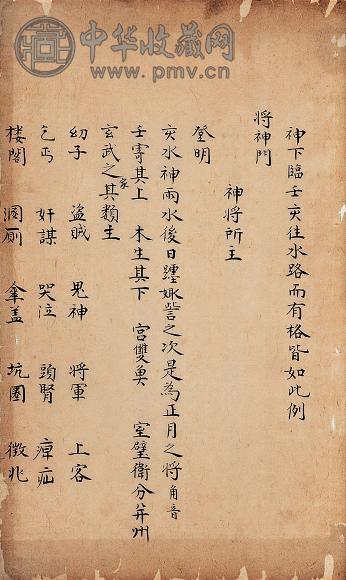 中华收藏网
www.pmv.cn
神下臨壬亥往水路而有格皆如此例
将神門
神将所主
登明
亥水神雨水後日躔娵訾之次是為正月之将角音
壬寄其上 木生其下 宫雙魚 室壁衛分并州
玄武之家其類主
幼子 盗賊 鬼神 将軍 上客
乞丐 奸謀 哭泣 頭腎 痺疝
楼閣 洞厠 傘盖 坑圊 徴兆